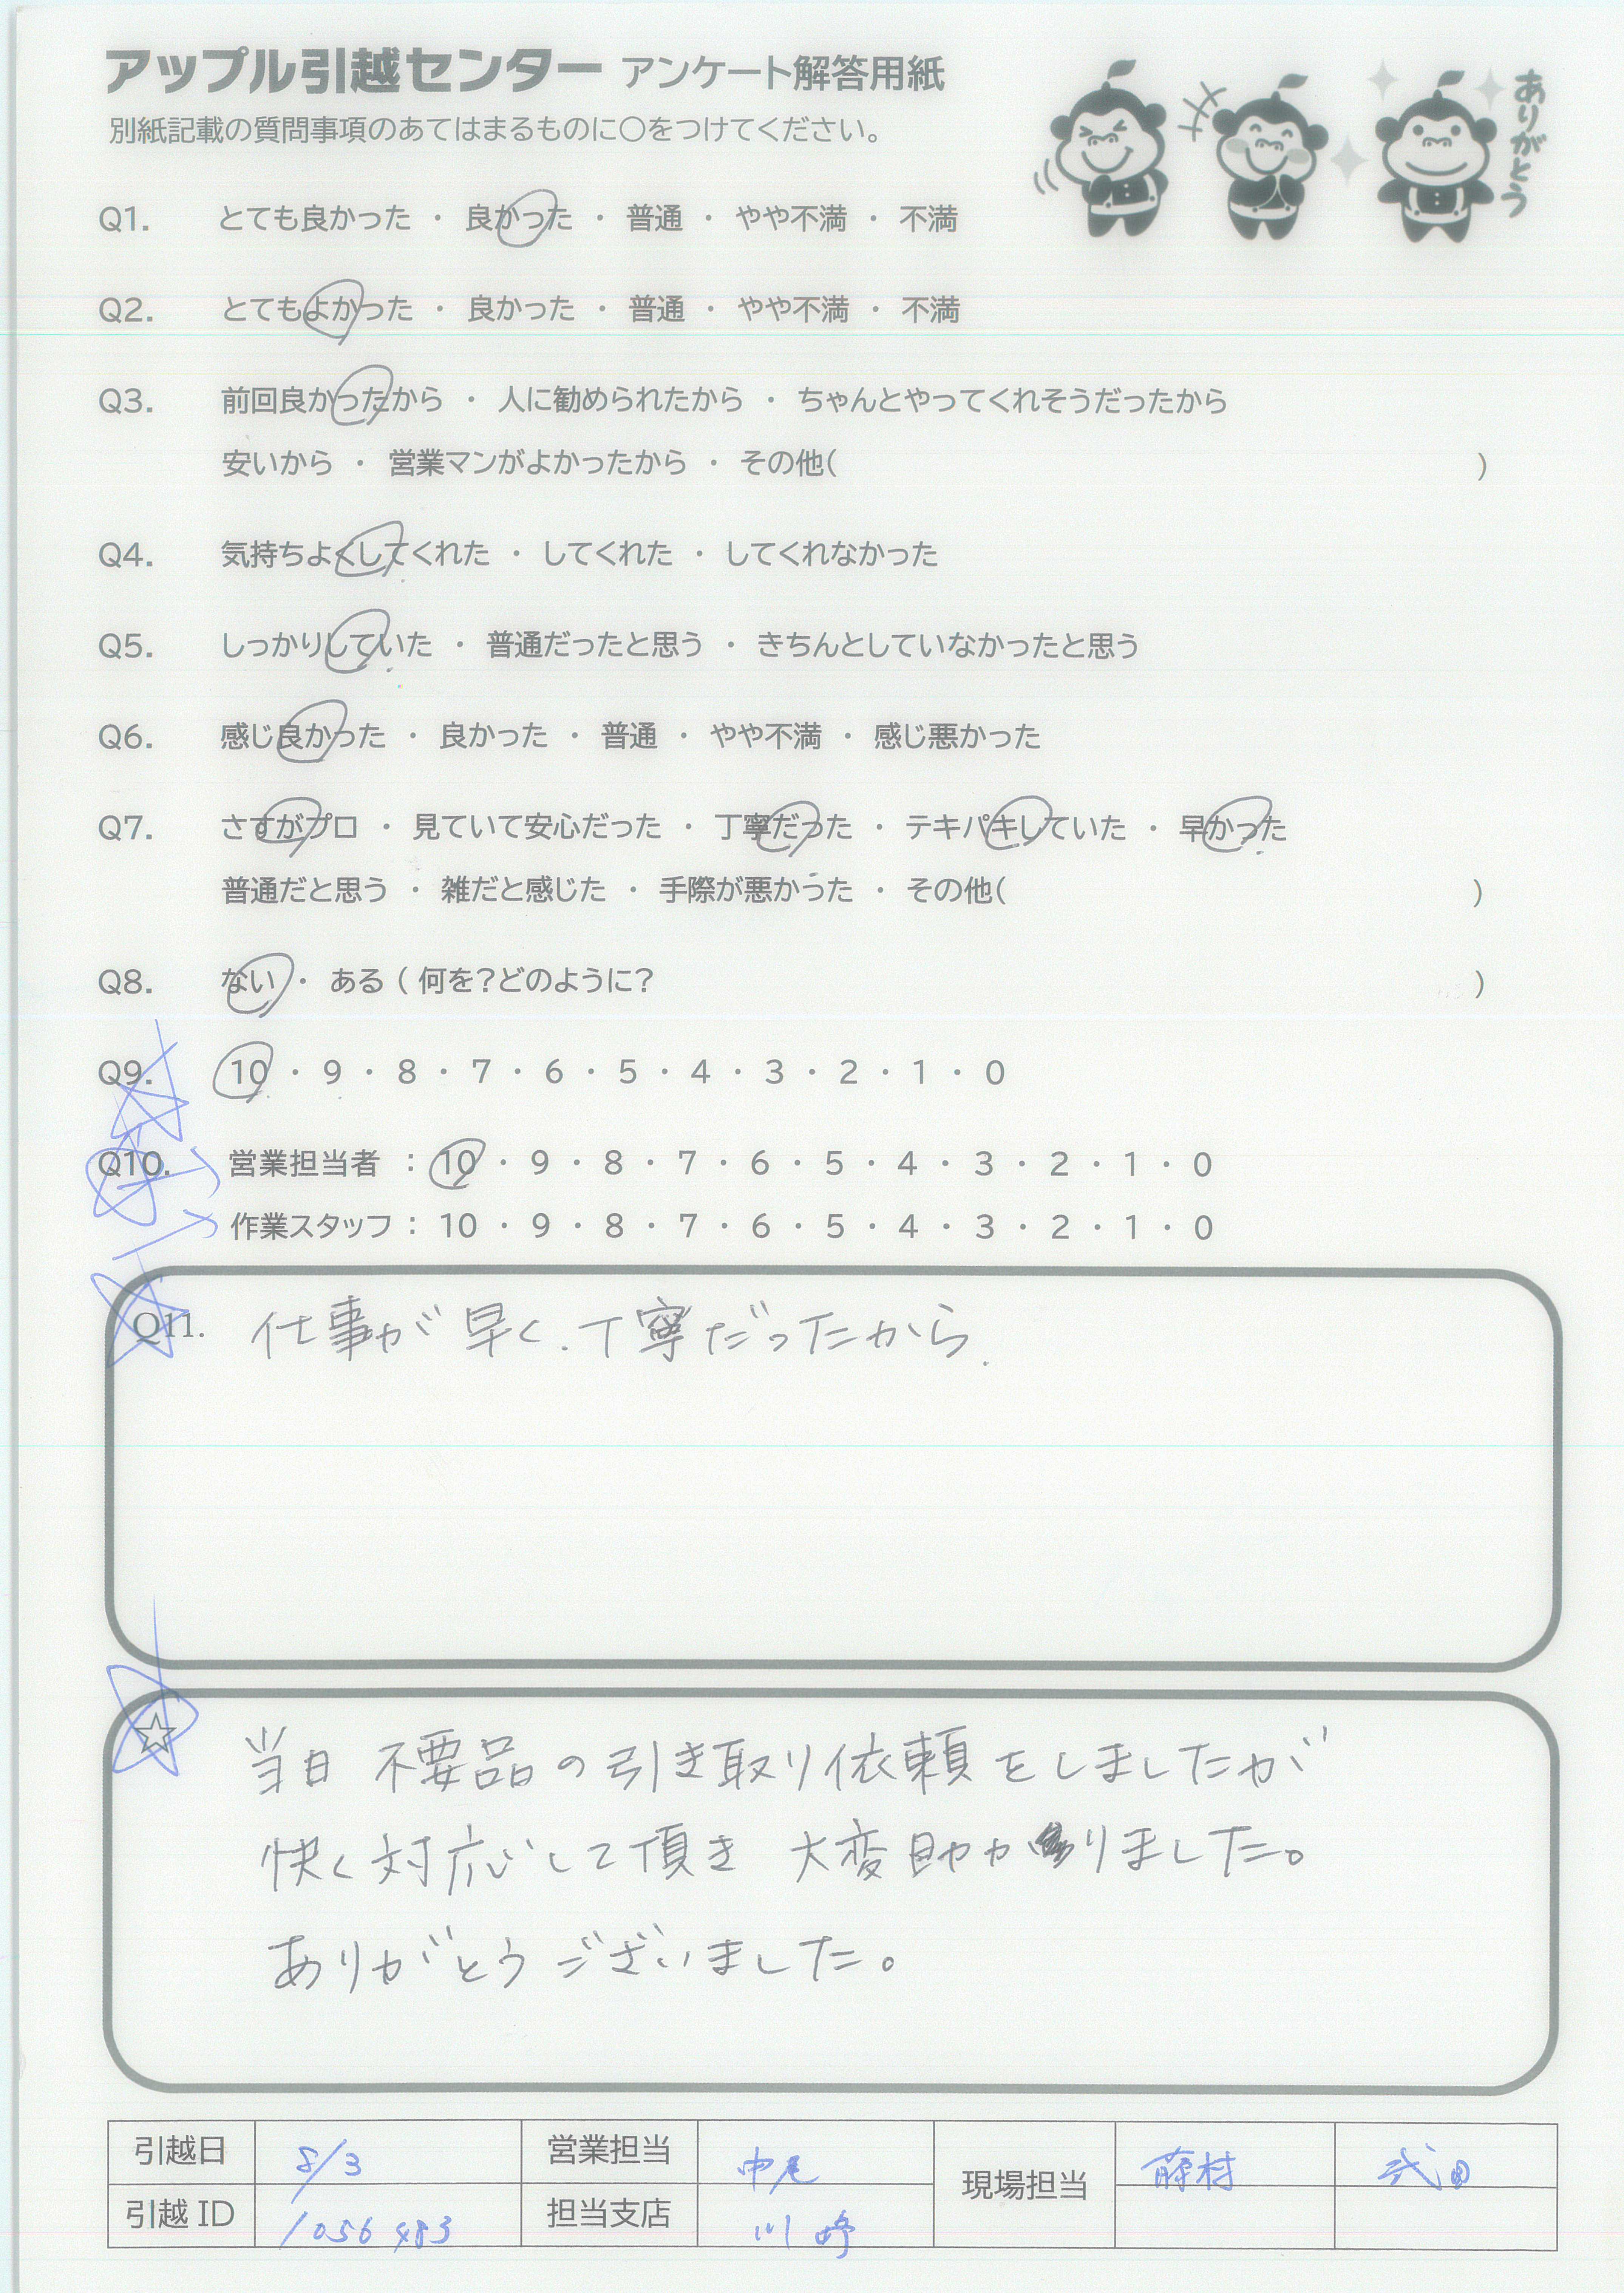 アップル引越センター アンケート解答用紙
ありがとう
別紙記載の質問事項のあてはまるものに〇をつけてください。
Q1. とても良かった ・ 良かった ・ 普通 ・ やや不満 ・ 不満
Q2. とてもよかった ・ 良かった ・ 普通 ・ やや不満 ・ 不満
Q3. 前回良かったから ・ 人に勧められたから ・ ちゃんとやってくれそうだったから
安いから ・ 営業マンがよかったから ・ その他( )
Q4. 気持ちよくしてくれた ・ してくれた ・ してくれなかった
Q5. しっかりしていた ・ 普通だったと思う ・ きちんとしていなかったと思う
Q6. 感じ良かった ・ 良かった ・ 普通 ・ やや不満 ・ 感じ悪かった
Q7. さすがプロ ・ 見ていて安心だった ・ 丁寧だった ・ テキパキしていた ・ 早かった
普通だと思う ・ 雑だと感じた ・ 手際が悪かった ・ その他( )
Q8. ない ・ ある ( 何を?どのように? )
Q9. 10 ・ 9 ・ 8 ・ 7 ・ 6 ・ 5 ・ 4 ・ 3 ・ 2 ・ 1 ・ 0
Q10. 営業担当者 : 10 ・ 9 ・ 8 ・ 7 ・ 6 ・ 5 ・ 4 ・ 3 ・ 2 ・ 1 ・ 0
作業スタッフ : 10 ・ 9 ・ 8 ・ 7 ・ 6 ・ 5 ・ 4 ・ 3 ・ 2 ・ 1 ・ 0
Q11. 仕事が早く、丁寧だったから.
☆ 当日 不要品の引き取り依頼をしましたが
快く対応して頂き 大変助かりました。
ありがとうございました。
引越日 8/3 営業担当 中尾 現場担当 藤村 武田
引越 ID 1056483 担当支店 川崎